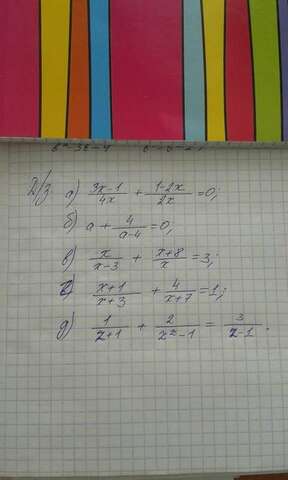 Д/з. а) (3x-1)/(4x) + (1-2x)/(2x) = 0;
б) a + 4/(a-4) = 0;
в) x/(x-3) + (x+8)/x = 3;
г) (x+1)/(x+3) + 4/(x+7) = 1;
д) 1/(z+1) + 2/(z²-1) = 3/(z-1).